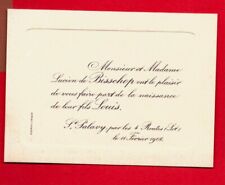 Monsieur et Madame
Lucien de Bisschop ont le plaisir
de vous faire part de la naissance
de leur fils Louis.
St Palavy, par les 4 Routes (Lot)
le 11 Février